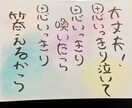 大丈夫!
思いっきり泣いて
思いっきり
喚いたら
思いっきり
笑えるから